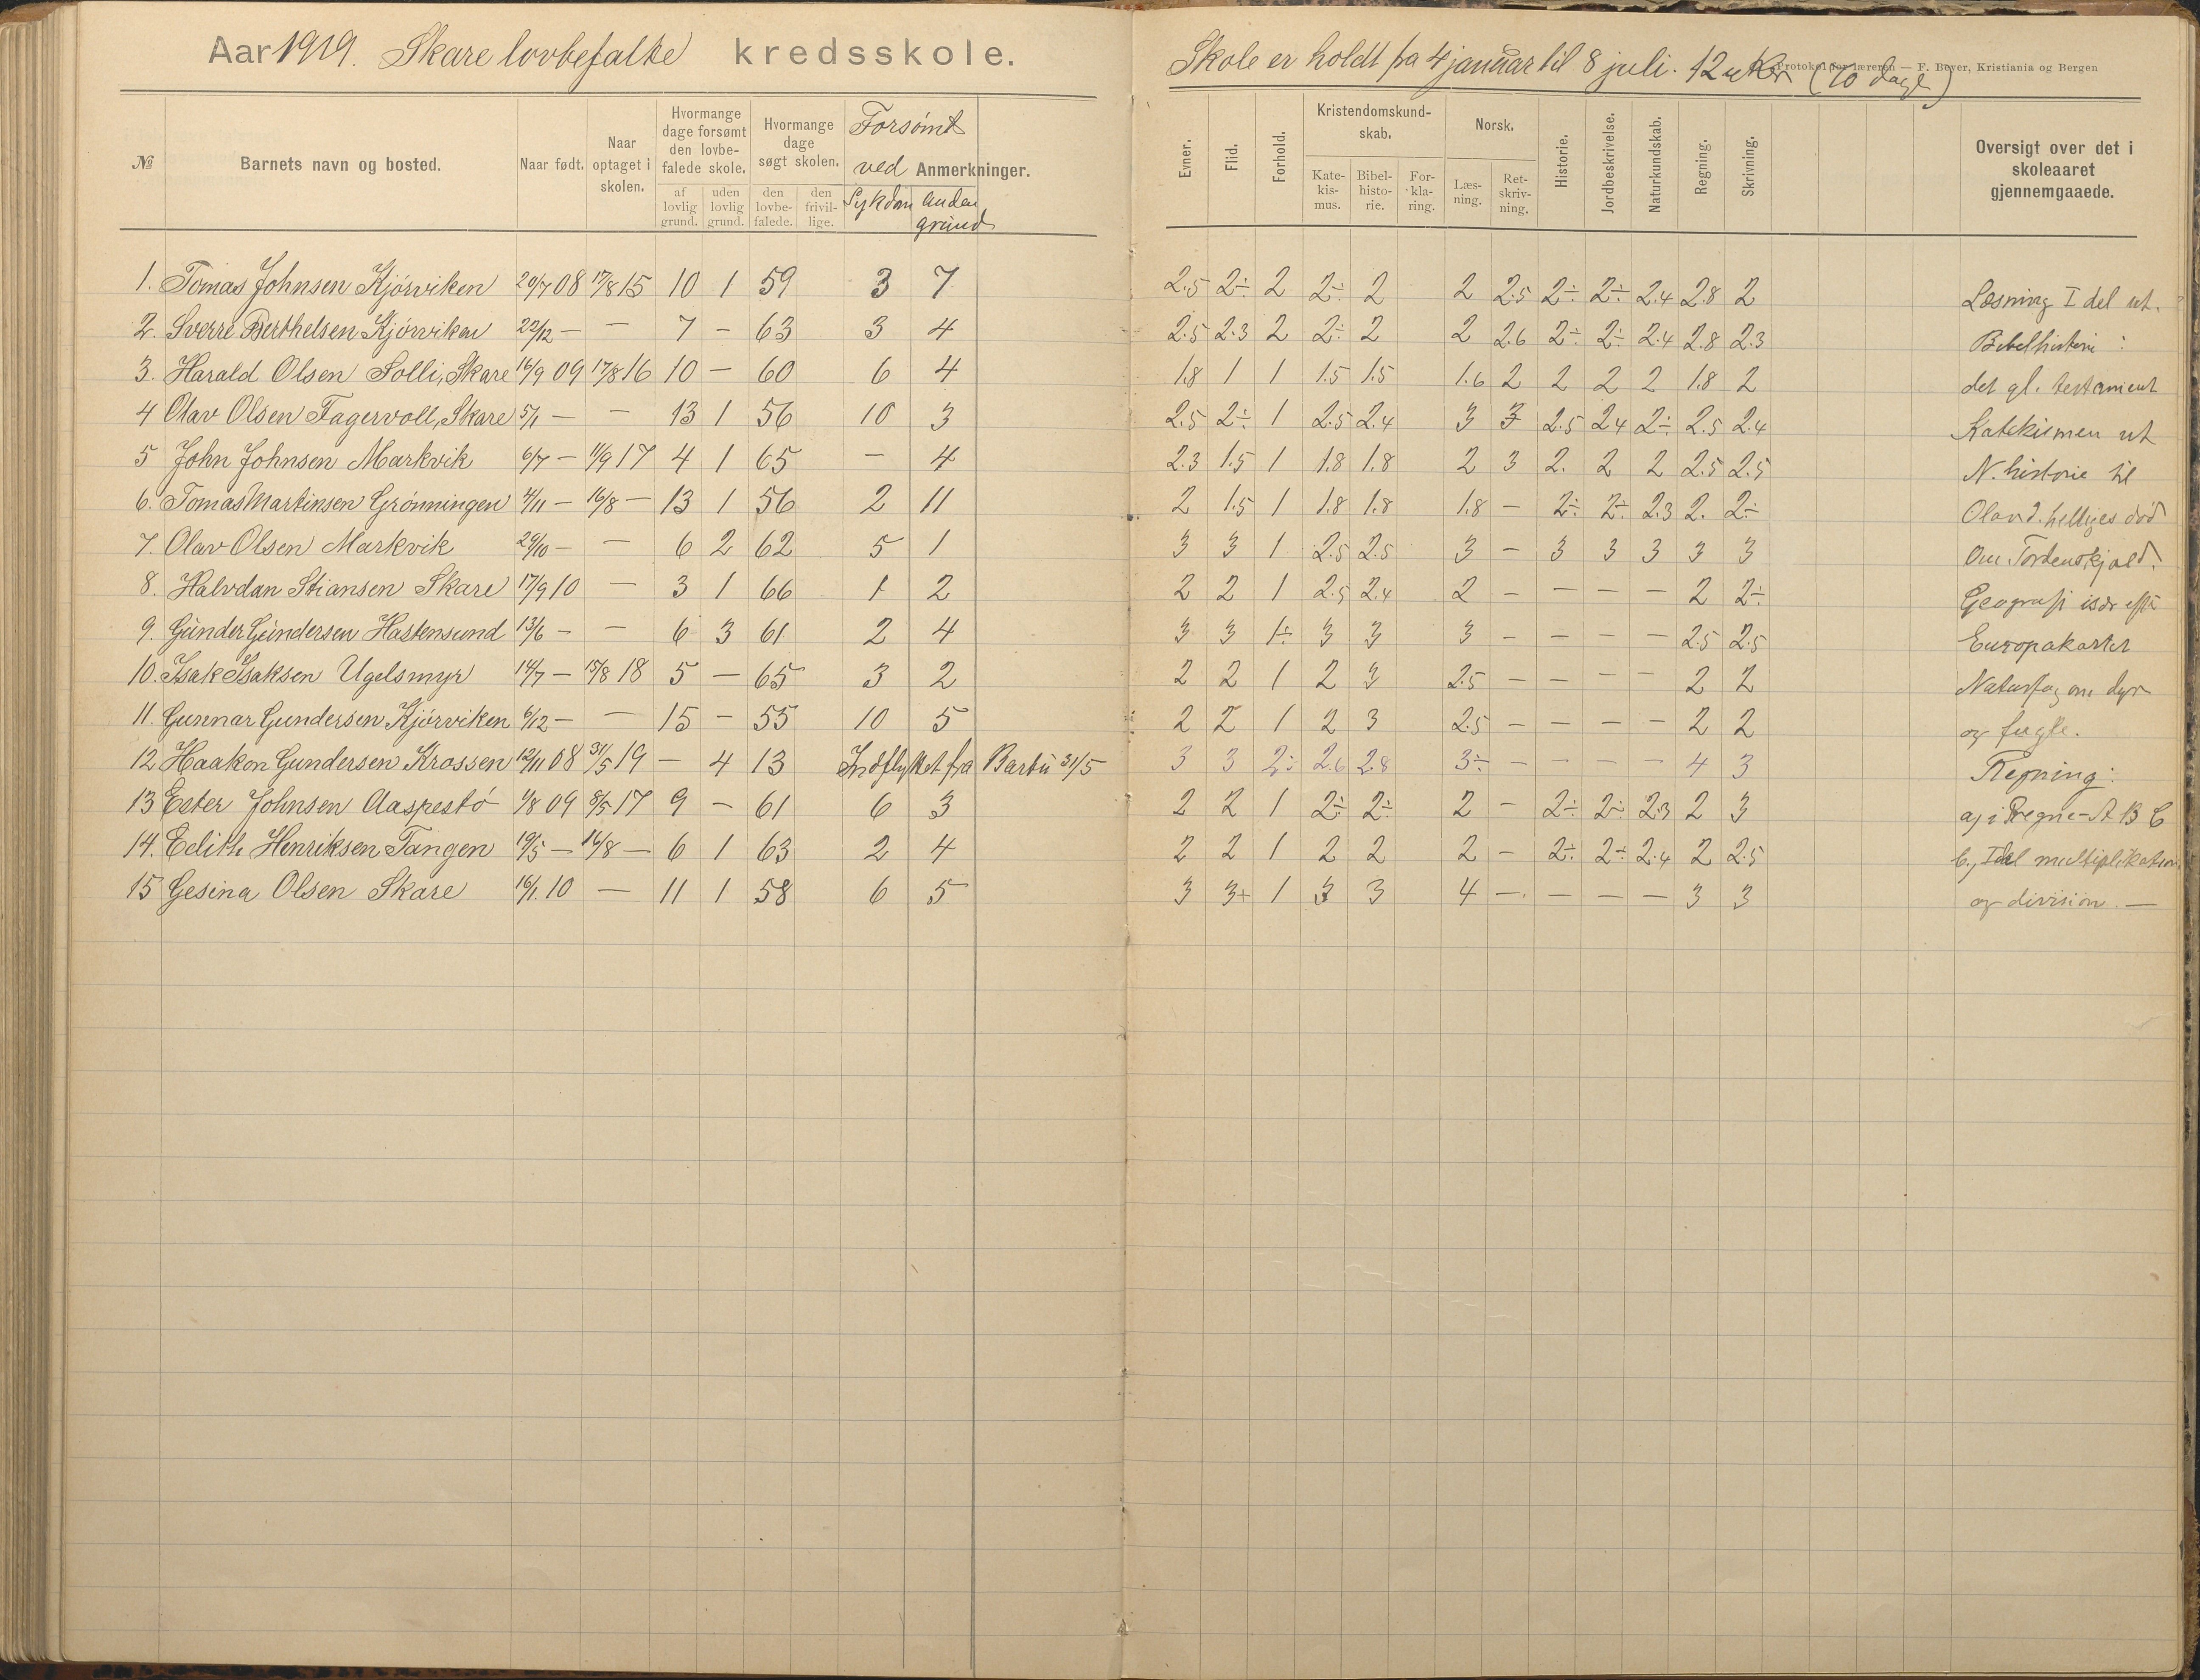 Aar 1919. Skare lovbefalte kredsskole.
Skole er holdt fra 4 januar til 8 juli. 12 uker (70 dage)
Protokol for læreren — F. Beyer, Kristiania og Bergen
№ Barnets navn og bosted. Naar født. Naar optaget i skolen. Hvormange dage forsømt den lovbefalede skole. af lovlig grund. uden lovlig grund. Hvormange dage søgt skolen. den lovbefalede. den frivillige. Forsømt ved Sykdom anden grund Anmerkninger.
Evner. Flid. Forhold. Kristendomskundskab. Katekismus. Bibelhistorie. Forklaring. Norsk. Læsning. Retskrivning. Historie. Jordbeskrivelse. Naturkundskab. Regning. Skrivning. Oversigt over det i skoleaaret gjennemgaaede.
1. Tomas Johnsen Kjørviken 20/7 08 17/8 15 10 1 59 3 7 2.5 2÷ 2 2÷ 2 2 2.5 2÷ 2÷ 2.4 2.8 2 Læsning I del ut.
2. Sverre Berthelsen Kjørviken 22/12 — — 7 — 63 3 4 2.5 2.3 2 2÷ 2 2 2.6 2÷ 2÷ 2.4 2.8 2.3 Bibelhistorie :
3. Harald Olsen Solli, Skare 16/9 09 17/8 16 10 — 60 6 4 1.8 1 1 1.5 1.5 1.6 2 2 2 2 1.8 2 det gl. testament
4 Olav Olsen Fagervoll, Skare 5/1 — — 13 1 56 10 3 2.5 2÷ 1 2.5 2.4 3 3 2.5 2.4 2÷ 2.5 2.4 Katekismen ut
5 John Johnsen Markvik 6/7 — 11/9 17 4 1 65 — 4 2.3 1.5 1 1.8 1.8 2 3 2. 2 2 2.5 2.5 N. historie til
6. Tomas Martinsen Grønningen 4/11 — 16/8 — 13 1 56 2 11 2 1.5 1 1.8 1.8 1.8 — 2÷ 2÷ 2.3 2. 2÷ Olav d. helliges død
7. Olav Olsen Markvik 29/10 — — 6 2 62 5 1 3 3 1 2.5 2.5 3 — 3 3 3 3 3 Om Tordenskjold.
8. Halvdan Stiansen Skare 17/9 10 — 3 1 66 1 2 2 2 1 2.5 2.4 2 — — — — 2 2÷ Geografi især efter
9. Gunder Gundersen Hastensund 13/6 — — 6 3 61 2 4 3 3 1÷ 3 3 3 — — — — 2.5 2.5 Europakartet
10. Isak Isaksen Ugelsmyr 14/7 — 15/8 18 5 — 65 3 2 2 2 1 2 3 2.5 — — — — 2 2 Naturfag om dyr
11. Gunnar Gundersen Kjørviken 6/12 — — 15 — 55 10 5 2 2 1 2 3 2.5 — — — — 2 2 og fugle.
12 Haakon Gundersen Krossen 12/11 08 31/5 19 — 4 13 Indflyttet fra Barbu 31/5 3 3 2÷ 2.6 2.8 3÷ — — — — 4 3 Regning:
13 Ester Johnsen Aaspestø 1/8 09 8/5 17 9 — 61 6 3 2 2 1 2÷ 2÷ 2 — 2÷ 2÷ 2.3 2 3 a, i Regne-ABC
14. Edith Henriksen Tangen 19/5 — 16/8 — 6 1 63 2 4 2 2 1 2 2 2 — 2÷ 2÷ 2.4 2 2.5 b, I del multiplikation
15 Gesina Olsen Skare 16/1. 10 — 11 1 58 6 5 3 3+ 1 3 3 4 — — — — 3 3 og division. —